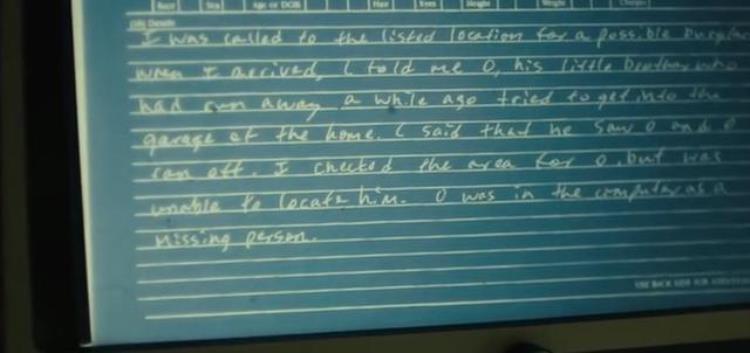 Race Sex Age or DOB Hair Eyes Height Weight
(18) Details
I was called to the listed location for a possible
when I arrived, C told me O, his little brother who
had run away a while ago tried to get into the
garage of the home. C said that he saw O and O
ran off. I checked the area for O, but was
unable to locate him. O was in the computer as a
missing person.
USE BACK SIDE FOR